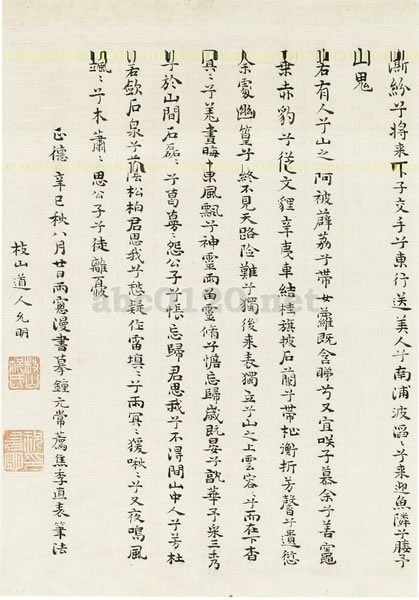 澌紛兮將來下子交手兮東行送美人兮南浦波滔々兮來迎魚隣兮媵予
山鬼
若有人兮山之阿被薜荔兮帶女蘿既含睇兮又宜咲子慕余兮善
乘赤豹兮從文貍辛夷車結桂旗被石蘭兮帶杜衡折芳馨兮遺
余處幽篁兮終不見天路險難兮獨後來表獨立兮山之上雲容々兮而在下杳
冥々兮羌晝晦東風飄兮神靈雨留靈脩兮憺忘歸歲既晏兮孰華予采三秀
兮於山間石磊々兮葛蔓々怨公子兮悵忘歸君思我兮不得間山中人兮芳杜
若飲石泉兮蔭松柏君思我兮然疑作雷填々兮雨冥々猨啾々兮又夜鳴風
颯々兮木蕭々思公子兮徒離憂
正德辛巳秋八月廿日雨窓漫書摹鍾元常薦焦季直表筆法
枝山道人允明
abc0120.net